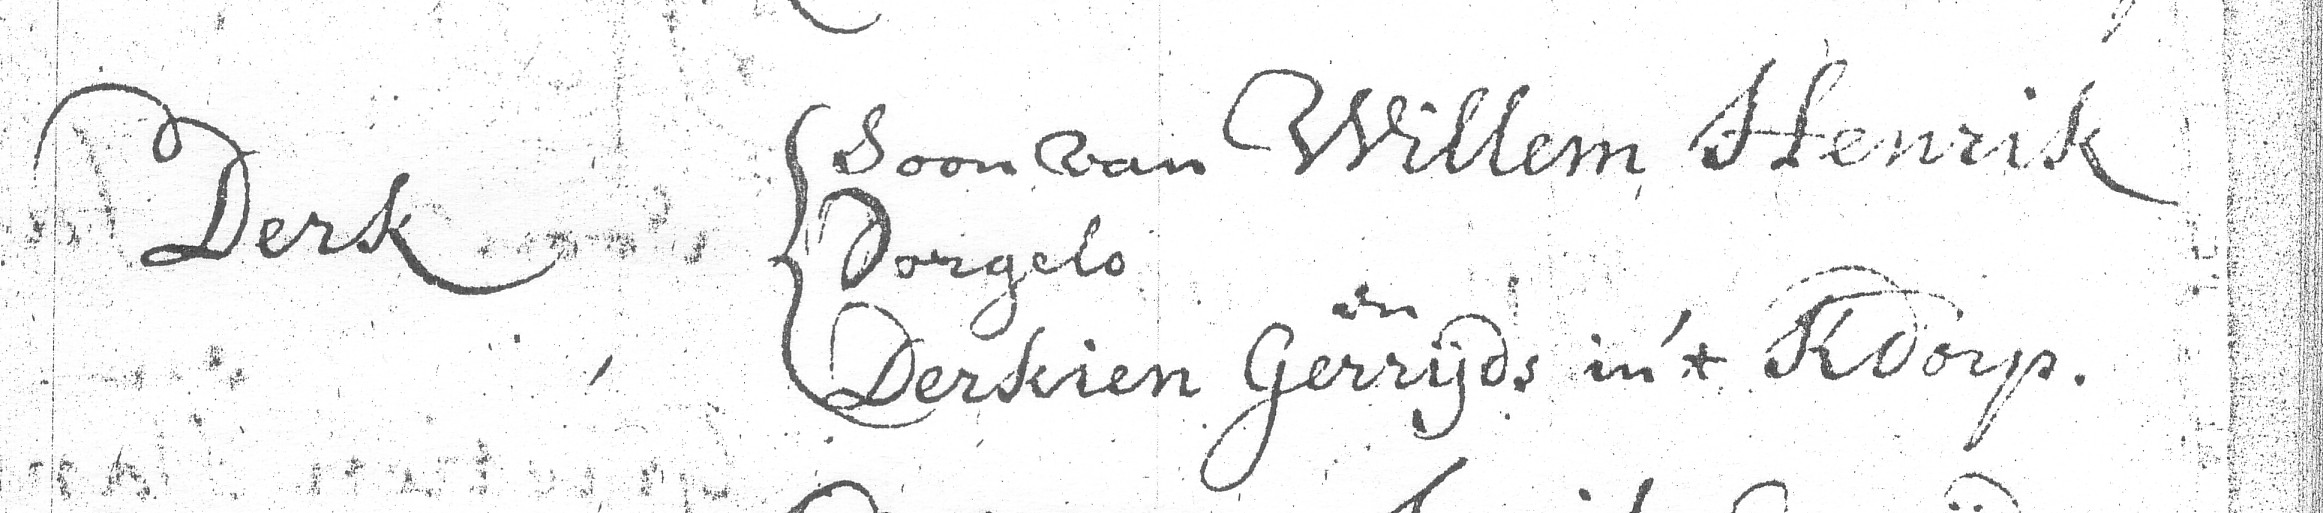 Derk
Soon van Willem Henrik
Dorgelo
en
Derkien Gerrijds in't KDorp.